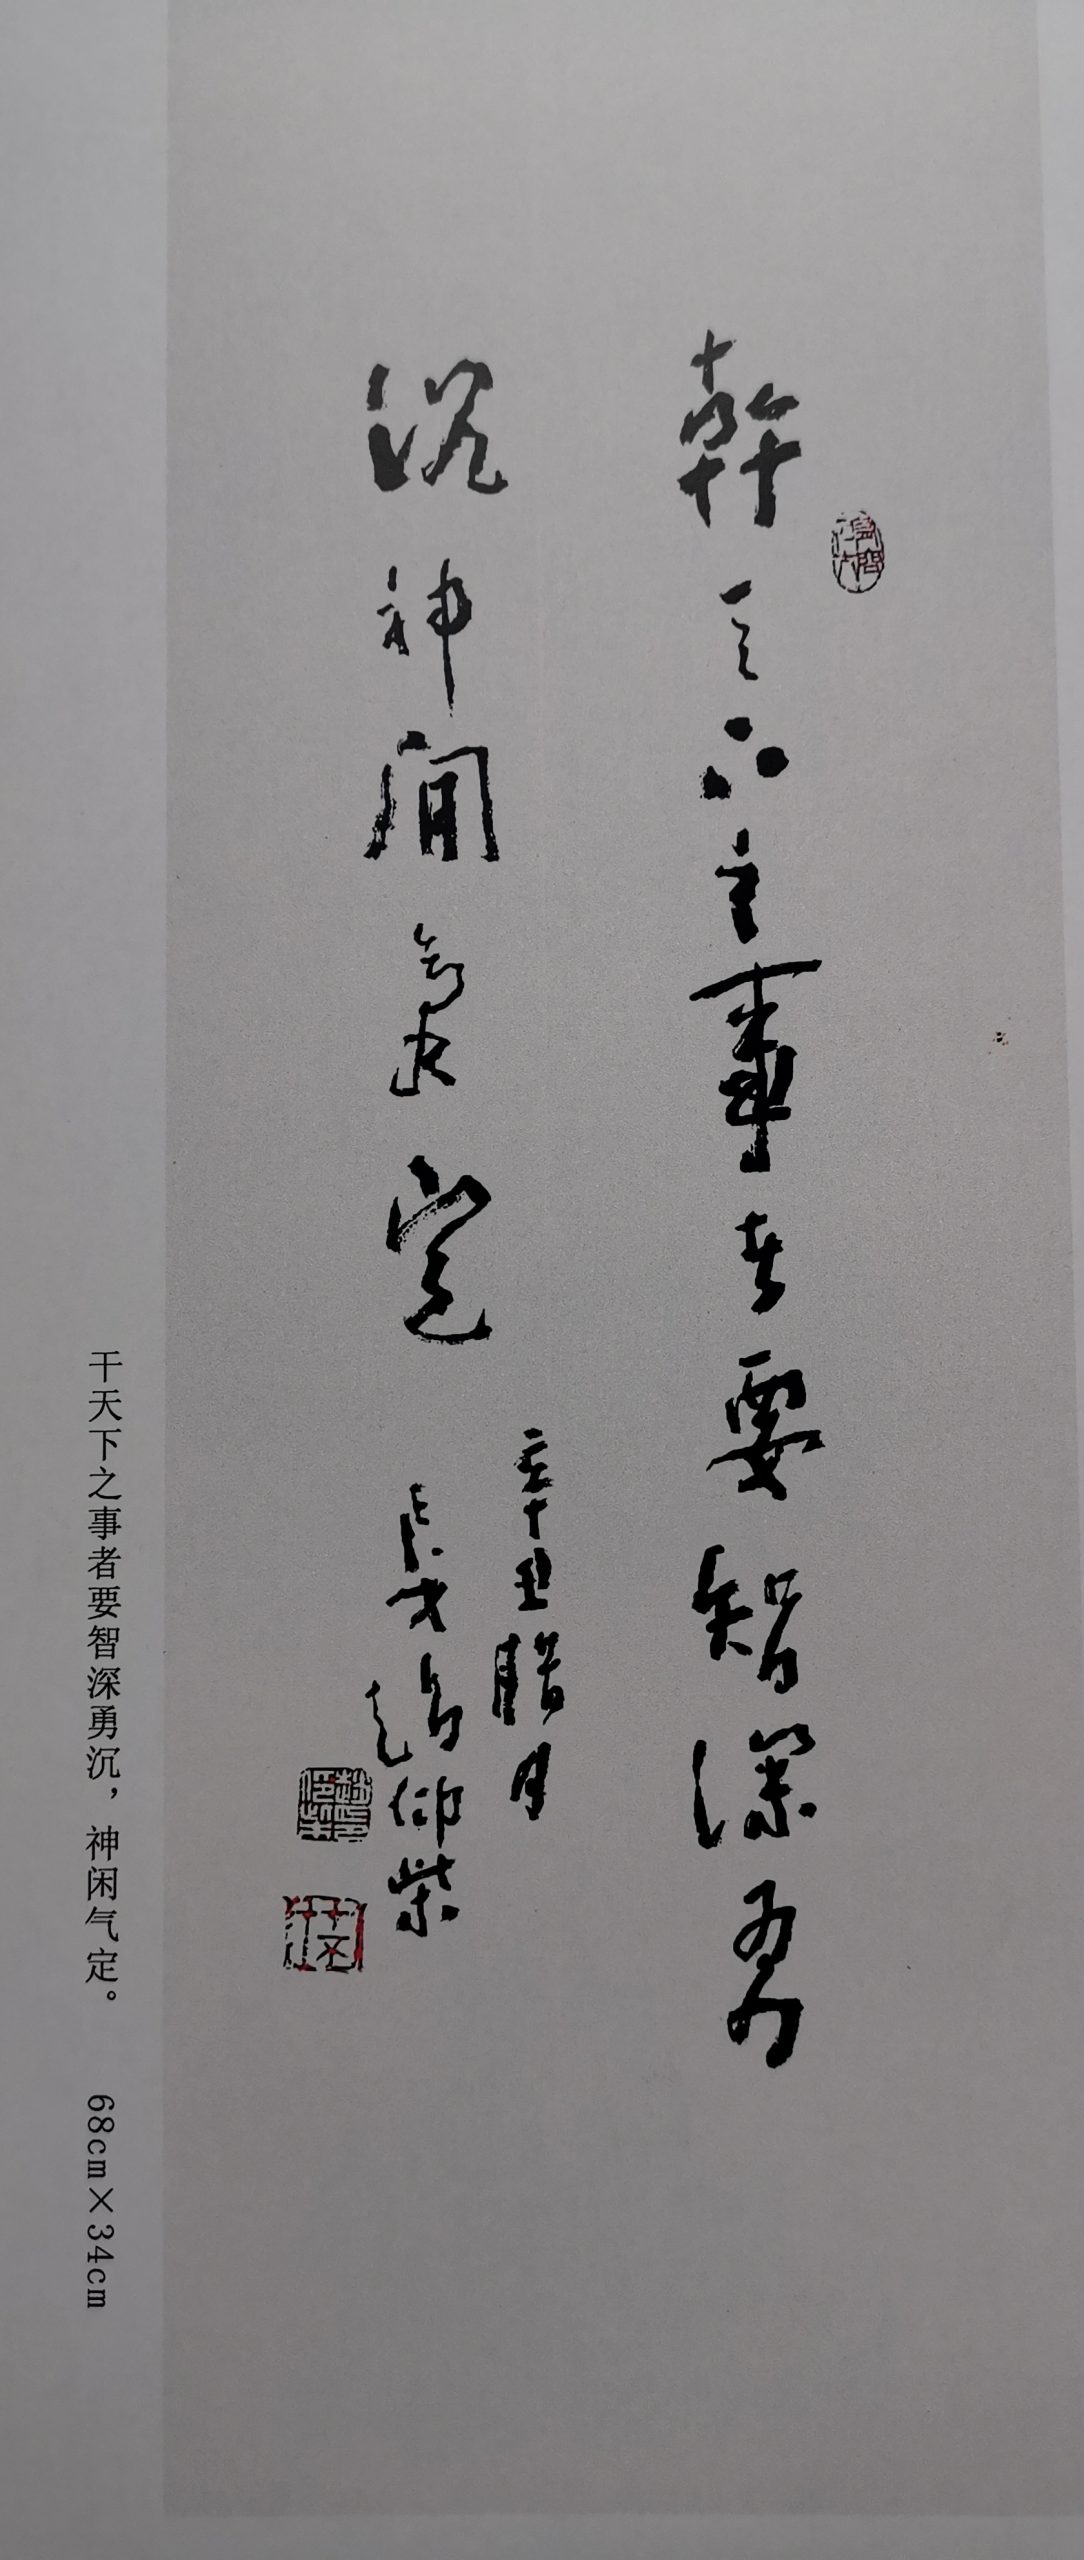 幹天下之事者要智深勇
沉神閒氣定
辛丑腊月
長安趙仰柴
干天下之事者要智深勇沉，神闲气定。 68cm×34cm